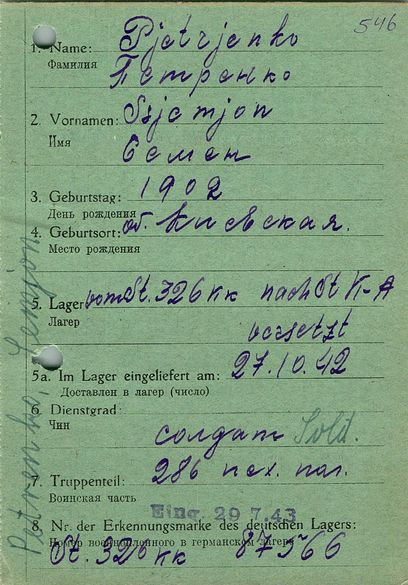 546
1. Name: Pjetrjenko
Фамилия
Петренко
2. Vornamen: Ssjemjon
Имя
Семен
3. Geburtstag: 1902
День рождения
4. Geburtsort: об. Киевская.
Место рождения
5. Lager vom St. 326 KK nach St VI-A
Лагерь
versetzt
27.10.42
5a. Im Lager eingeliefert am:
Доставлен в лагерь (число)
6. Dienstgrad:
Чин
солдат Sold.
286 пех. пол.
7. Truppenteil:
Воинская часть
Eing. 29 7.43
8. Nr. der Erkennungsmarke des deutschen Lagers:
Номер военнопленного в германском лагере
St. 326 KK 87566
Petrenko, Semjon